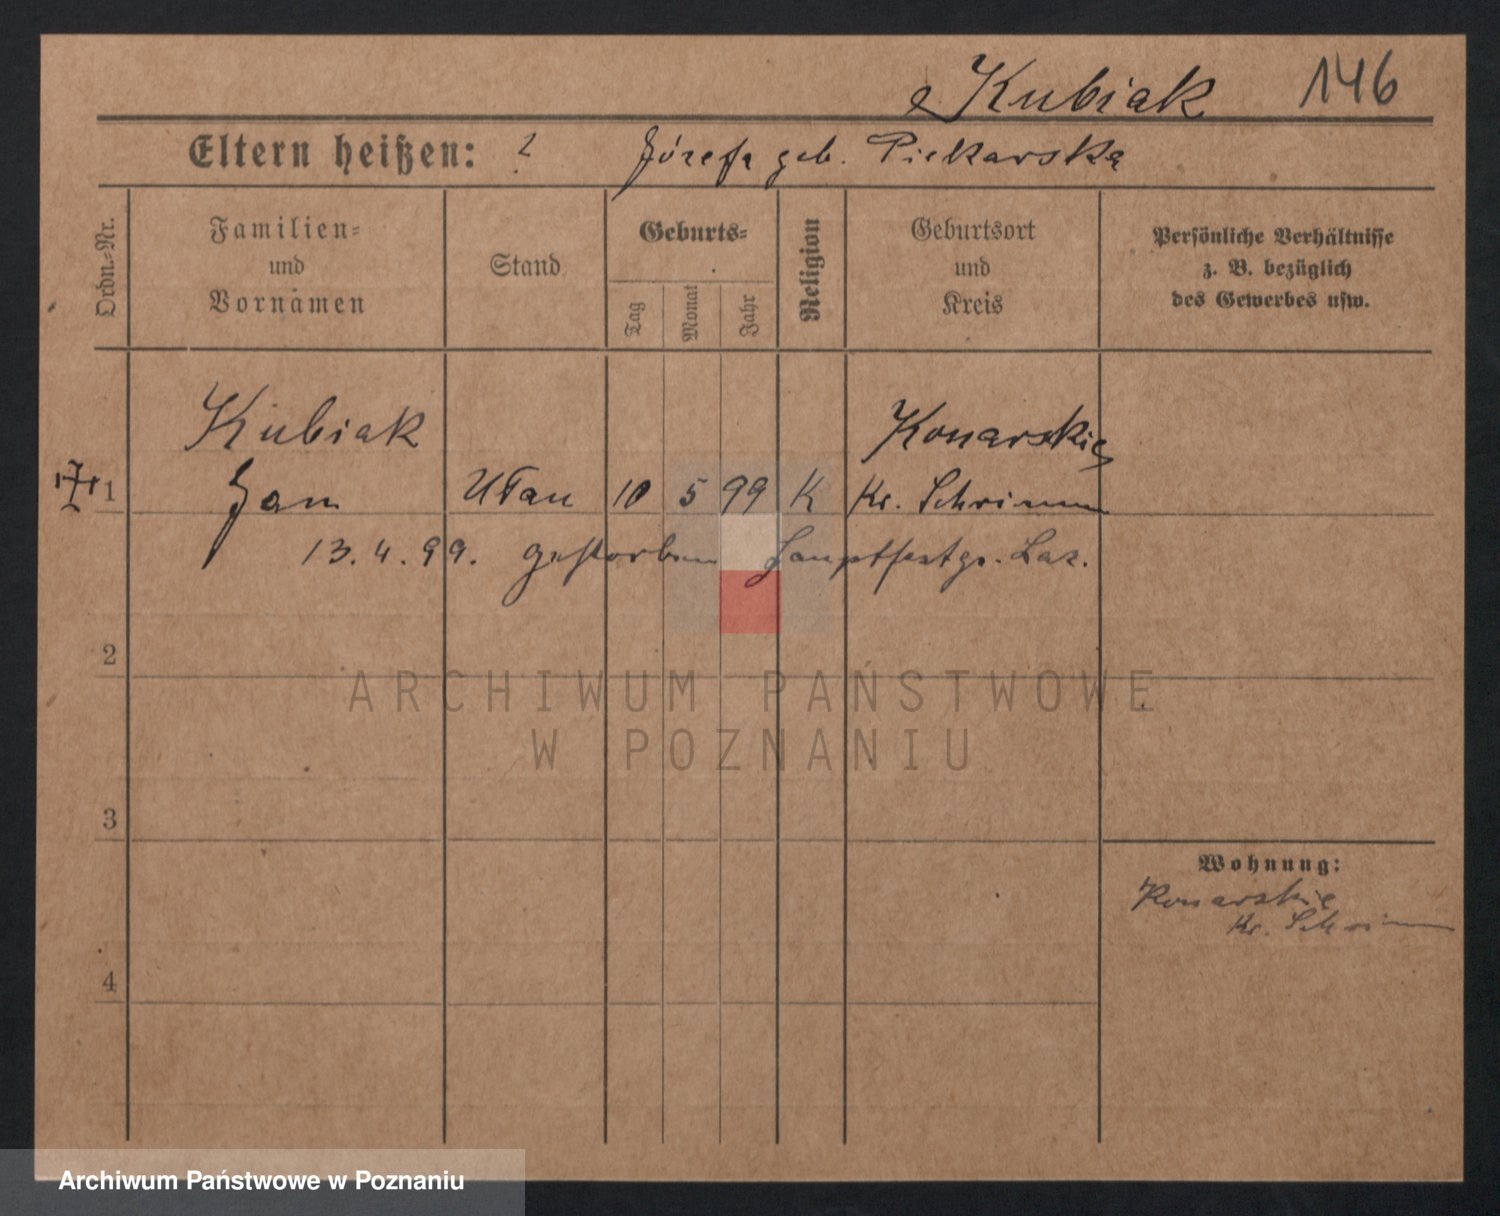 e Kubiak 146
Eltern heißen: ? Józefa geb. Piekarska
Ordn.-Nr.
Familien-
und
Vornamen
Stand
Geburts-
Tag
Monat
Jahr
Religion
Geburtsort
und
Kreis
Persönliche Verhältnisse
z. B. bezüglich
des Gewerbes usw.
Kubiak Konarskie
1 Jan Ułan 10 5 99 K Kr. Schrimm
13.4.99. gestorben Hauptfestgs. Laz.
2
ARCHIWUM PAŃSTWOWE
W POZNANIU
3
Wohnung:
Konarskie
Kr. Schrimm
4
Archiwum Państwowe w Poznaniu